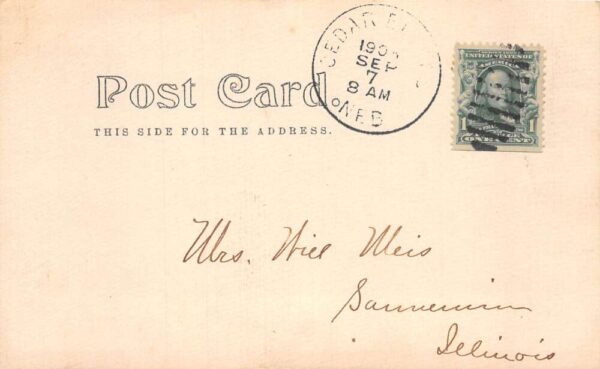 Post Card
THIS SIDE FOR THE ADDRESS.
CEDAR
SEP
7
8 AM
NEB
UNITED STATES OF
AMERICA
1
ONE CENT
Mrs. Will Weis
Saunemin
Illinois